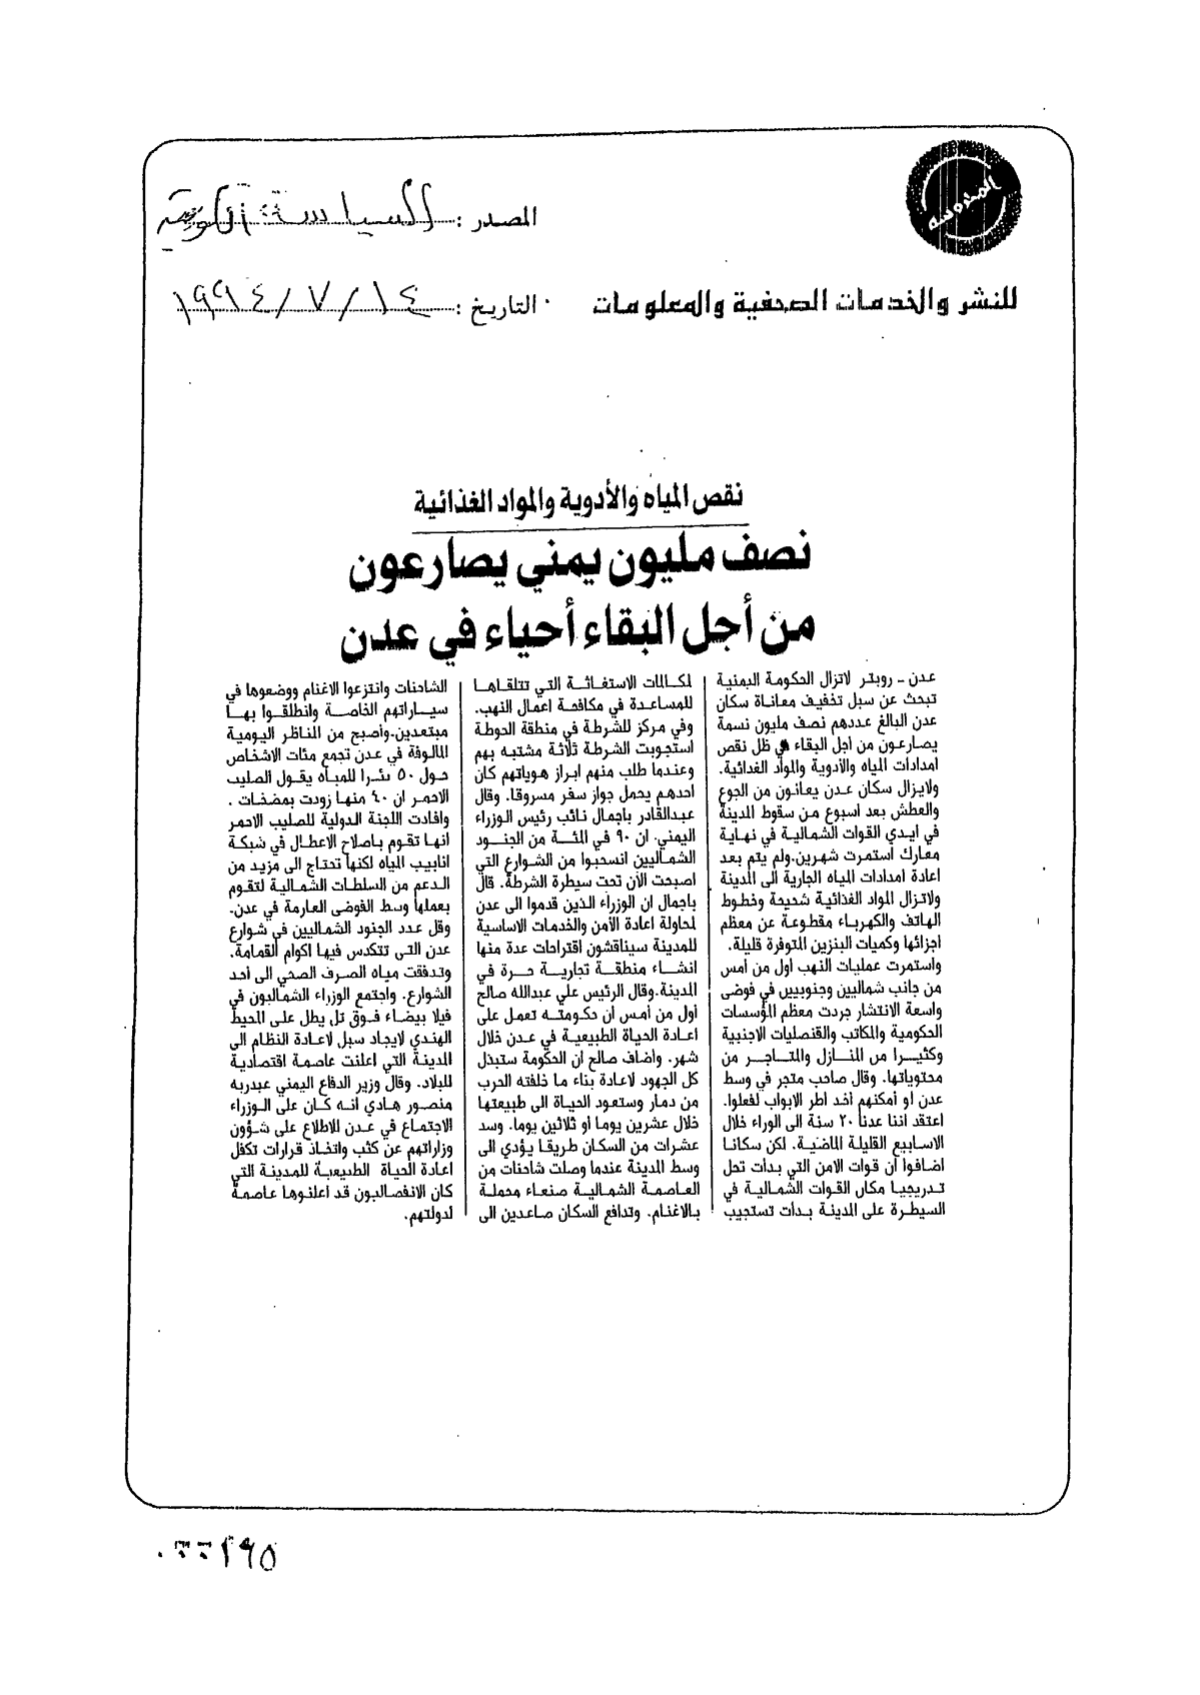 المحروسة
للنشر والخدمات الصحفية والمعلومات
المصدر : السياسة الكويتية
التاريخ : ١٤ / ٧ / ١٩٩٤
نقص المياه والأدوية والمواد الغذائية
نصف مليون يمني يصارعون
من أجل البقاء أحياء في عدن
عدن - رويتر لاتزال الحكومة اليمنية
تبحث عن سبل تخفيف معاناة سكان
عدن البالغ عددهم نصف مليون نسمة
يصارعون من أجل البقاء في ظل نقص
امدادات المياه والأدوية والمواد الغذائية.
ولايزال سكان عدن يعانون من الجوع
والعطش بعد اسبوع من سقوط المدينة
في ايدي القوات الشمالية في نهاية
معارك استمرت شهرين.ولم يتم بعد
اعادة امدادات المياه الجارية الى المدينة
ولاتزال المواد الغذائية شحيحة وخطوط
الهاتف والكهرباء مقطوعة عن معظم
اجزائها وكميات البنزين المتوفرة قليلة.
واستمرت عمليات النهب أول من أمس
من جانب شماليين وجنوبيين في فوضى
واسعة الانتشار جردت معظم المؤسسات
الحكومية والمكاتب والقنصليات الاجنبية
وكثيرا من المنازل والمتاجر من
محتوياتها. وقال صاحب متجر في وسط
عدن لو أمكنهم أخذ اطر الابواب لفعلوا.
اعتقد اننا عدنا ٢٠ سنة الى الوراء خلال
الاسابيع القليلة الماضية. لكن سكانا
اضافوا أن قوات الامن التي بدأت تحل
تدريجيا مكان القوات الشمالية في
السيطرة على المدينة بدأت تستجيب
لمكالمات الاستغاثة التي تتلقاها
للمساعدة في مكافحة اعمال النهب.
وفي مركز للشرطة في منطقة الحوطة
استجوبت الشرطة ثلاثة مشتبه بهم
وعندما طلب منهم ابراز هوياتهم كان
احدهم يحمل جواز سفر مسروقا. وقال
عبدالقادر باجمال نائب رئيس الوزراء
اليمني. ان ٩٠ في المئة من الجنود
الشماليين انسحبوا من الشوارع التي
اصبحت الآن تحت سيطرة الشرطة. قال
باجمال ان الوزراء الذين قدموا الى عدن
لمحاولة اعادة الأمن والخدمات الاساسية
للمدينة سيناقشون اقتراحات عدة منها
انشاء منطقة تجارية حرة في
المدينة.وقال الرئيس علي عبدالله صالح
أول من أمس ان حكومته تعمل على
اعادة الحياة الطبيعية في عدن خلال
شهر. واضاف صالح ان الحكومة ستبذل
كل الجهود لاعادة بناء ما خلفته الحرب
من دمار وستعود الحياة الى طبيعتها
خلال عشرين يوما أو ثلاثين يوما. وسد
عشرات من السكان طريقا يؤدي الى
وسط المدينة عندما وصلت شاحنات من
العاصمة الشمالية صنعاء محملة
بالاغنام. وتدافع السكان صاعدين الى
الشاحنات وانتزعوا الاغنام ووضعوها في
سياراتهم الخاصة وانطلقوا بها
مبتعدين.وأصبح من المناظر اليومية
المألوفة في عدن تجمع مئات الاشخاص
حول ٥٠ بئرا للمياه يقول الصليب
الاحمر ان ٤٠ منها زودت بمضخات .
وافادت اللجنة الدولية للصليب الاحمر
انها تقوم باصلاح الاعطال في شبكة
انابيب المياه لكنها تحتاج الى مزيد من
الدعم من السلطات الشمالية لتقوم
بعملها وسط الفوضى العارمة في عدن.
وقل عدد الجنود الشماليين في شوارع
عدن التي تتكدس فيها اكوام القمامة.
وتدفقت مياه الصرف الصحي الى أحد
الشوارع. واجتمع الوزراء الشماليون في
فيلا بيضاء فوق تل يطل على المحيط
الهندي لايجاد سبل لاعادة النظام الى
المدينة التي اعلنت عاصمة اقتصادية
للبلاد. وقال وزير الدفاع اليمني عبدربه
منصور هادي انه كان على الوزراء
الاجتماع في عدن للاطلاع على شؤون
وزاراتهم عن كثب واتخاذ قرارات تكفل
اعادة الحياة الطبيعية للمدينة التي
كان الانفصاليون قد اعلنوها عاصمة
لدولتهم.